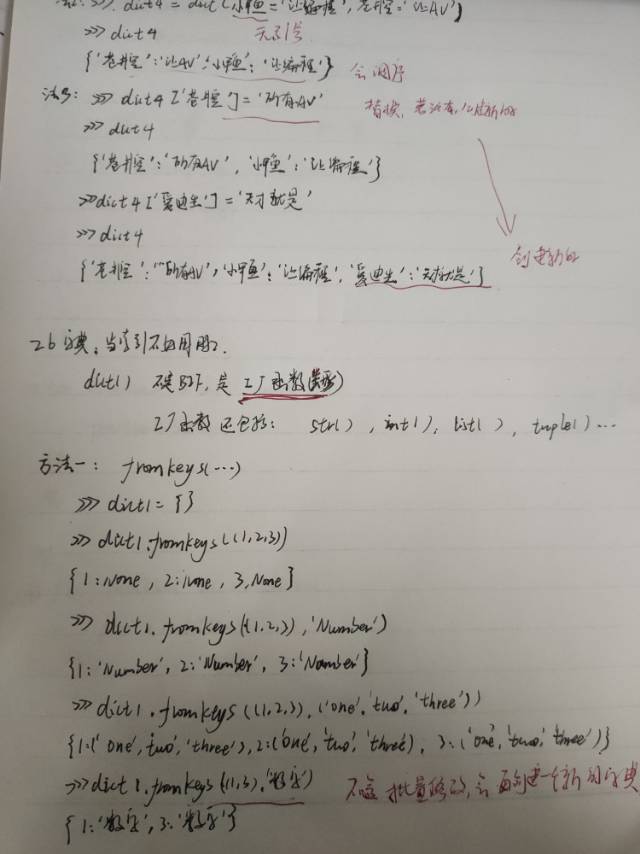 >>> dict4 = dict(小甲鱼='让编程', 苍井空='让AV')
>>> dict4 无引号
{'苍井空':'让AV', '小甲鱼':'让编程'} 会调序
>>> dict4['苍井空']='所有AV' 替换,
>>> dict4
{'苍井空':'所有AV', '小甲鱼':'让编程'}
>>> dict4['爱迪生']='天才就是'
>>> dict4
创建新的
{'苍井空':'所有AV', '小甲鱼':'让编程', '爱迪生':'天才就是'}
26 字典:当索引不好用时2.
dict() 不是BIF, 是工厂函数(类型)
工厂函数还包括: str(), int(), list(), tuple()...
方法一: fromkeys(...)
>>> dict1 = {}
>>> dict1.fromkeys((1,2,3))
{1:None, 2:None, 3,None}
>>> dict1.fromkeys((1,2,3),'Number')
{1:'Number', 2:'Number', 3:'Number'}
>>> dict1.fromkeys((1,2,3),('one','two','three'))
{1:('one','two','three'), 2:('one','two','three'), 3:('one','two','three')}
>>> dict1.fromkeys((1,3),'数字') 不会批量修改,会再创建一个新的字典
{1:'数字', 3:'数字'}